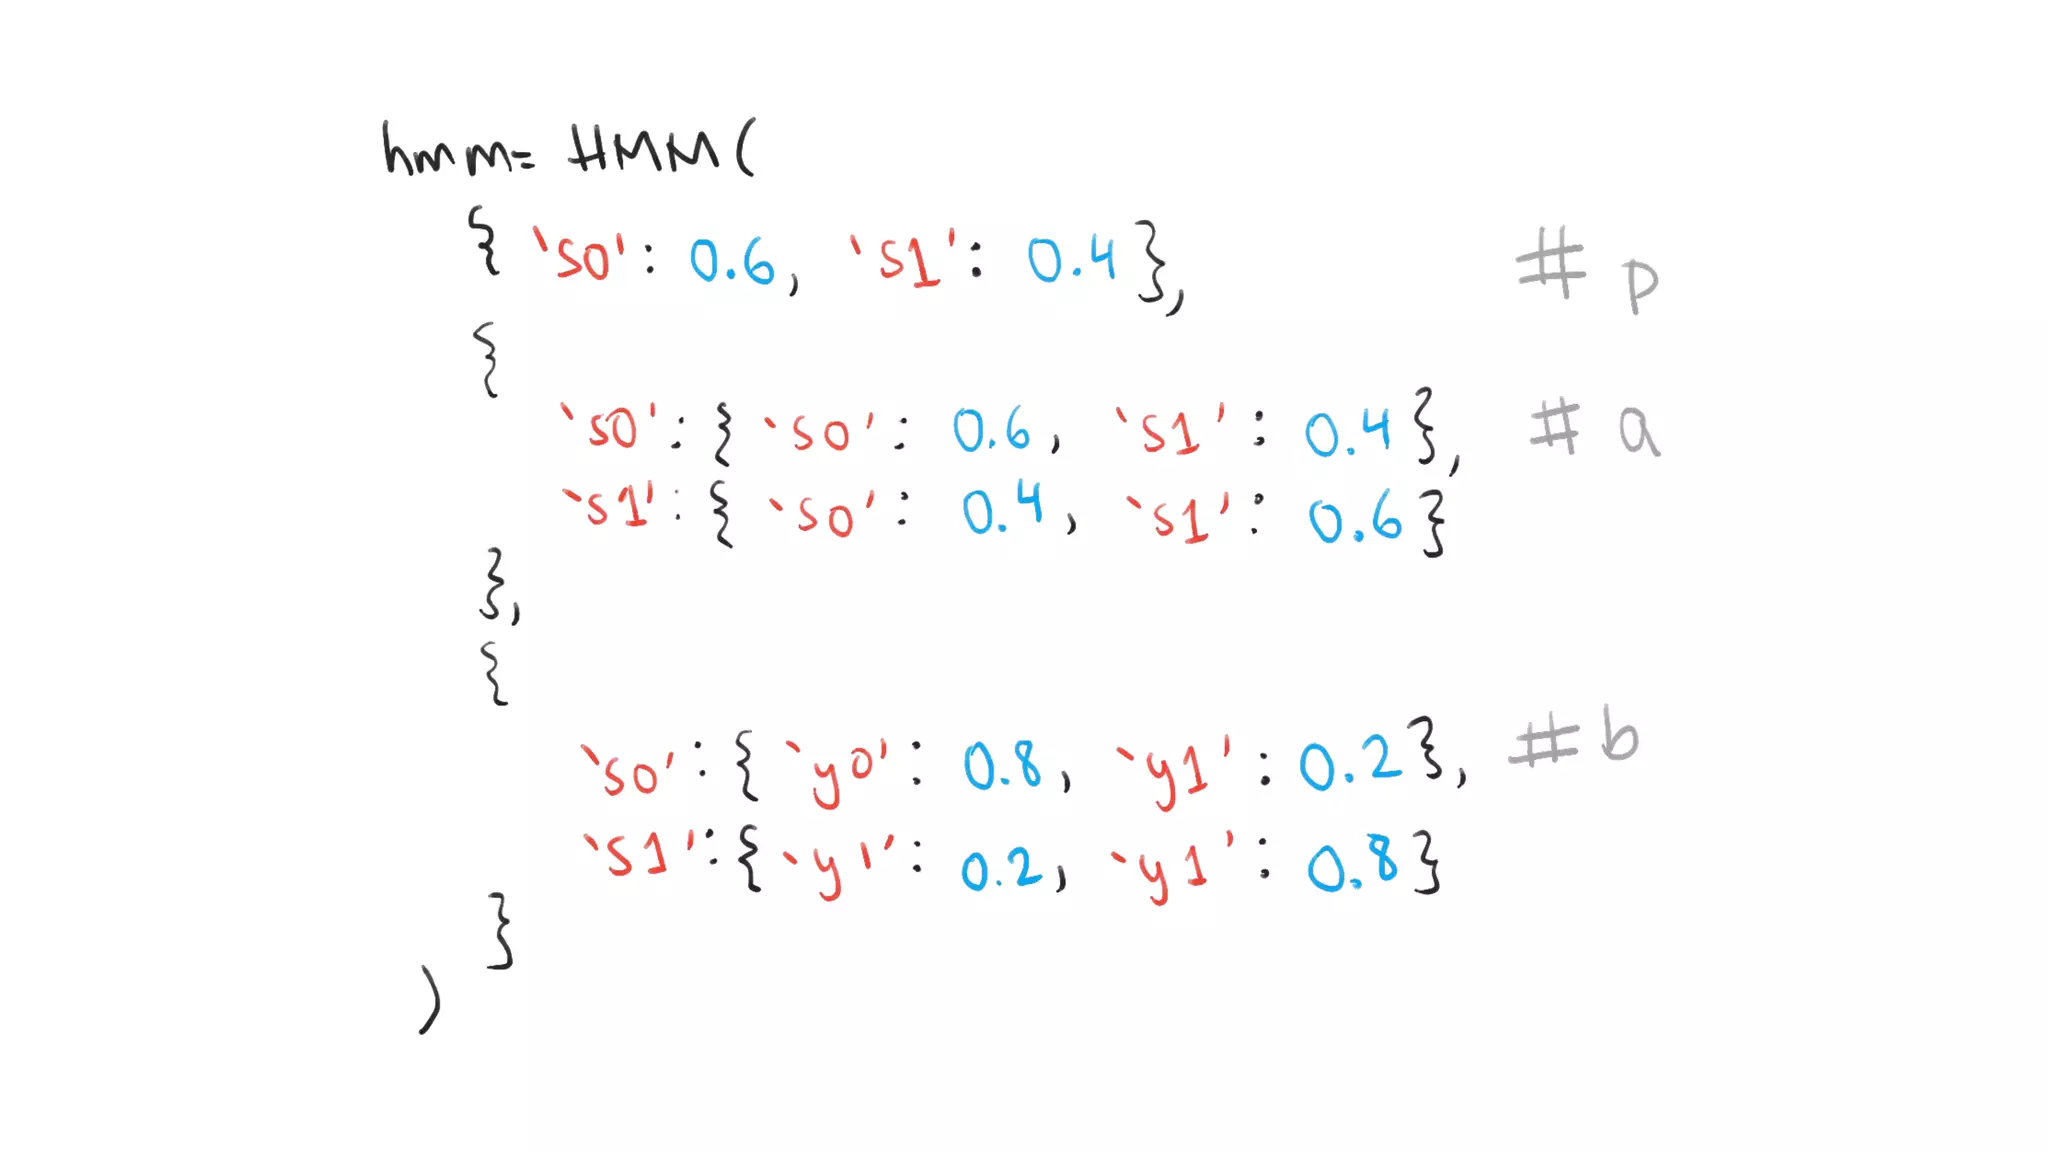 hmm= HMM(
{ 's0': 0.6, 's1': 0.4}, # p
{
's0': { 's0': 0.6, 's1': 0.4}, # a
's1': { 's0': 0.4, 's1': 0.6}
},
{
's0': { 'y0': 0.8, 'y1': 0.2}, # b
's1': { 'y1': 0.2, 'y1': 0.8}
}
)